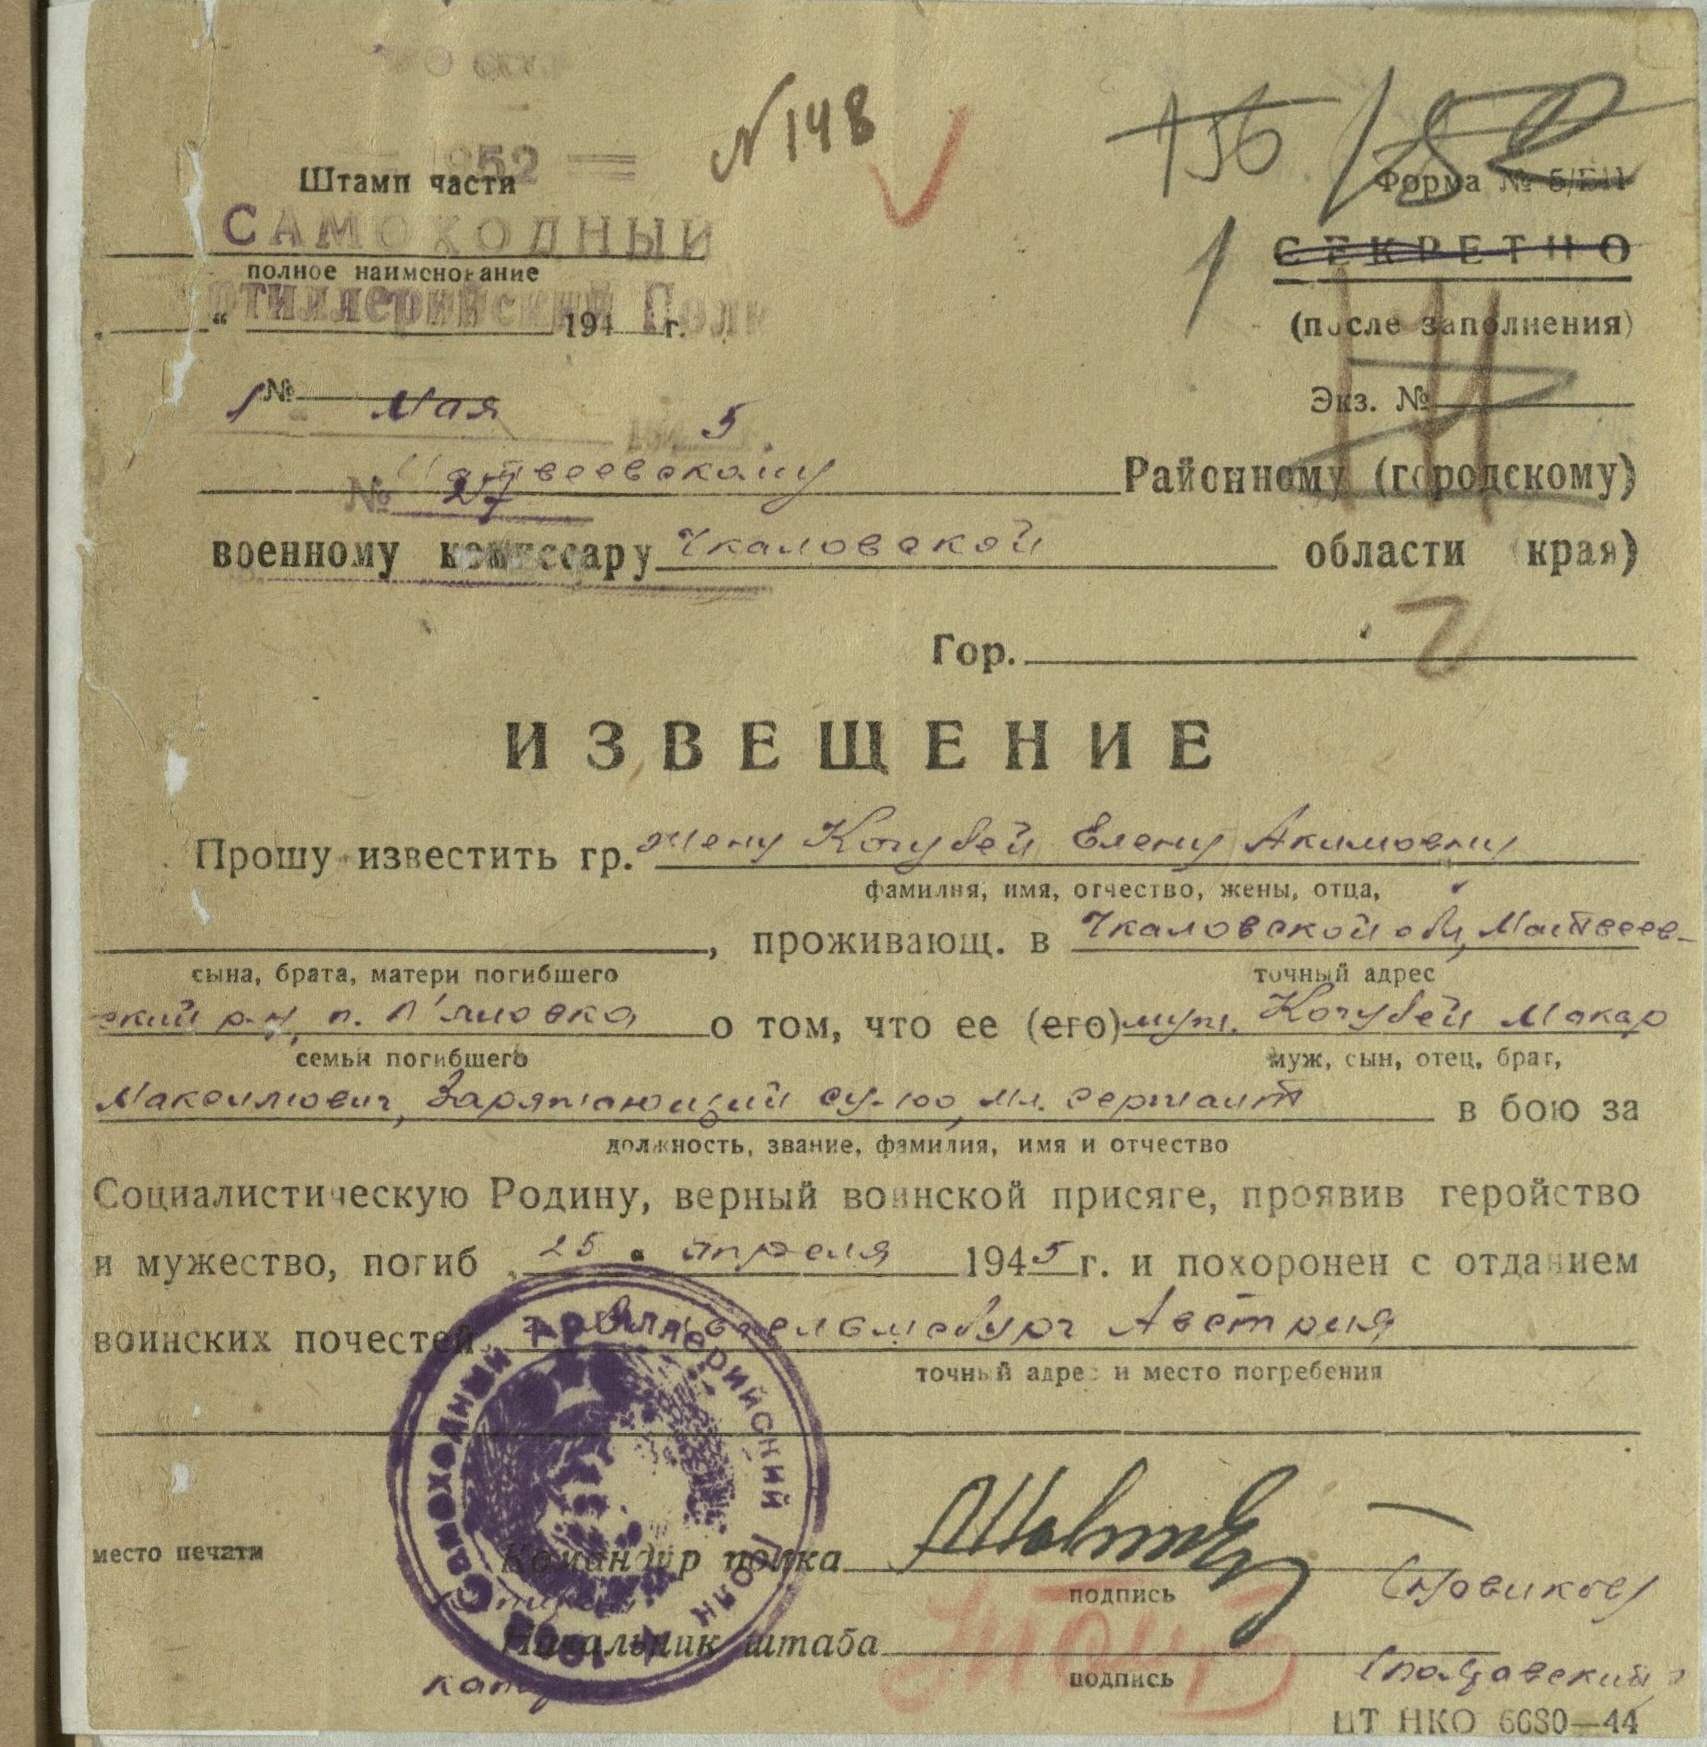 № 148
156
1852
Штамп части
Форма № 5/БП
САМОХОДНЫЙ
СЕКРЕТНО
полное наименование
ртиллерийский Полк
"____" 194 г.
(после заполнения)
1 Мая 5
№
Экз. №
Матвеевскому Районному (городскому)
№ 27
военному комиссару Чкаловской области (края)
Гор.
ИЗВЕЩЕНИЕ
Прошу известить гр. жену Кочубей Елену Акимовну
фамилия, имя, отчество, жены, отца,
, проживающ. в Чкаловской обл, Матвеев-
сына, брата, матери погибшего точный адрес
ский р-н, п. о том, что ее (его) муж. Кочубей Макар
семьи погибшего муж, сын, отец, брат,
Максимович, Заряжающий су-100, мл. сержант в бою за
должность, звание, фамилия, имя и отчество
Социалистическую Родину, верный воинской присяге, проявив геройство
и мужество, погиб 25 апреля 1945 г. и похоронен с отданием
воинских почестей Австрия
точный адрес и место погребения
Самоходный Артиллерийский Полк
место печати
Командир полка
подпись
(Новиков)
Начальник штаба
подпись
капитан
(Полтавский)
ЦТ НКО 6680—44